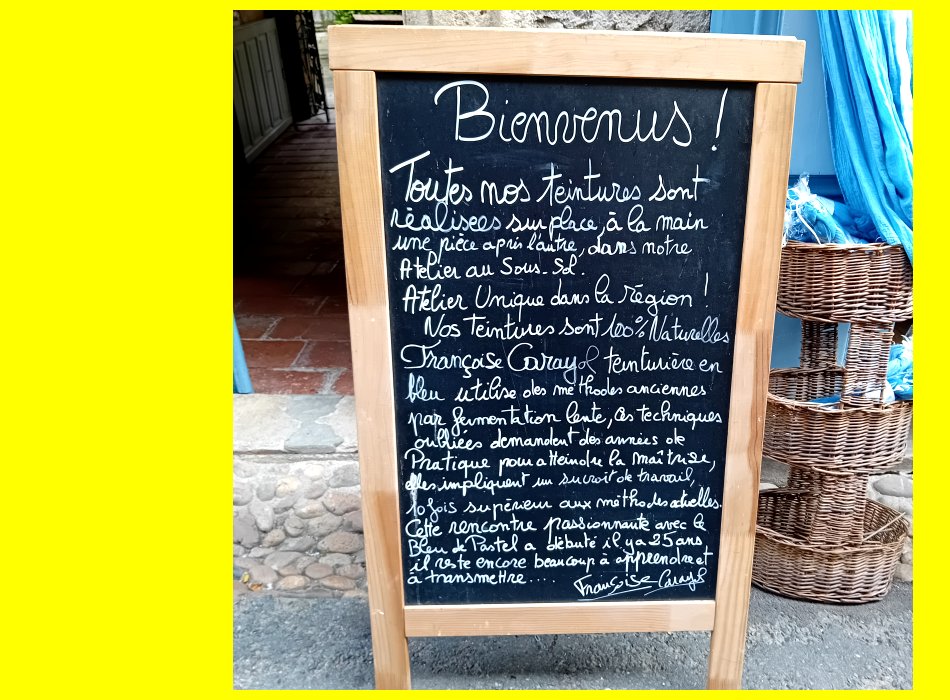 Bienvenus !
Toutes nos teintures sont
réalisées sur place, à la main
une pièce après l'autre, dans notre
Atelier au Sous-Sol.
Atelier Unique dans la région !
Nos Teintures sont 100% Naturelles
Françoise Carayol teinturière en
bleu utilise des méthodes anciennes
par fermentation lente, ces techniques
oubliées demandent des années de
Pratique pour atteindre la maîtrise,
elles impliquent un surcroit de travail,
10 fois supérieur aux méthodes actuelles.
Cette rencontre passionnante avec le
Bleu de Pastel a débuté il y a 25 ans
il reste encore beaucoup à apprendre et
à transmettre ....
Françoise Carayol